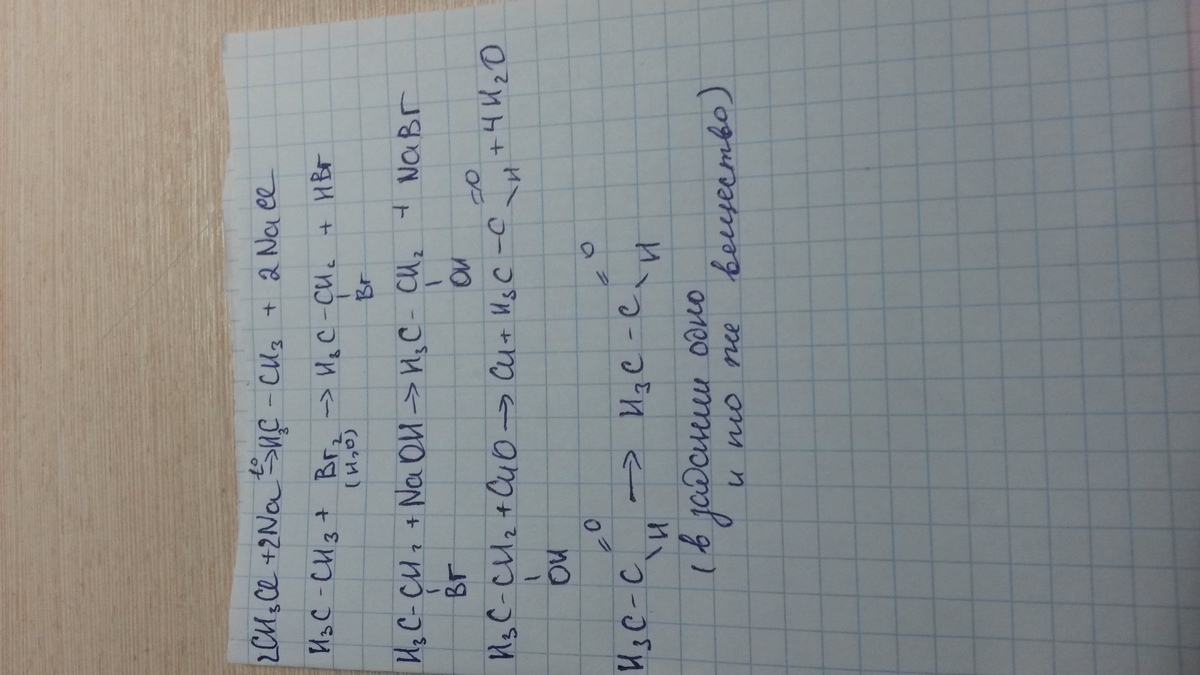 2CH₃Cl + 2Na →t° H₃C - CH₃ + 2NaCl
H₃C - CH₃ + Br₂ → H₃C - CH₂ + HBr
(H₂O) Br
H₃C - CH₂ + NaOH → H₃C - CH₂ + NaBr
Br OH
H₃C - CH₂ + CuO → Cu + H₃C - C =O \H + 4H₂O
OH
H₃C - C =O \H → H₃C - C =O \H
(в задании одно
и то же вещество)